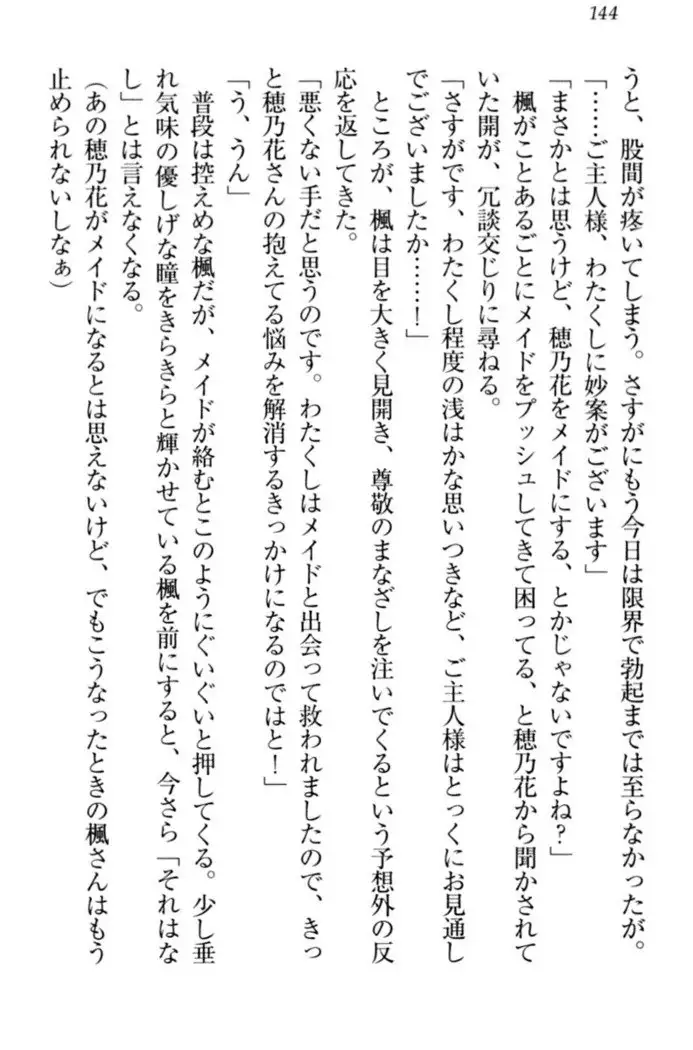 144
うと、股間が疼いてしまう。さすがにもう今日は限界で勃起までは至らなかったが。
「……ご主人様、わたくしに妙案がございます」
「まさかとは思うけど、穂乃花をメイドにする、とかじゃないですよね？」
楓がことあるごとにメイドをプッシュしてきて困ってる、と穂乃花から聞かされて
いた開が、冗談交じりに尋ねる。
「さすがです、わたくし程度の浅はかな思いつきなど、ご主人様はとっくにお見通し
でございましたか……！」
ところが、楓は目を大きく見開き、尊敬のまなざしを注いでくるという予想外の反
応を返してきた。
「悪くない手だと思うのです。わたくしはメイドと出会って救われましたので、きっ
と穂乃花さんの抱えてる悩みを解消するきっかけになるのではと！」
「う、うん」
普段は控えめな楓だが、メイドが絡むとこのようにぐいぐいと押してくる。少し垂
れ気味の優しげな瞳をきらきらと輝かせている楓を前にすると、今さら「それはな
し」とは言えなくなる。
（あの穂乃花がメイドになるとは思えないけど、でもこうなったときの楓さんはもう
止められないしなぁ）